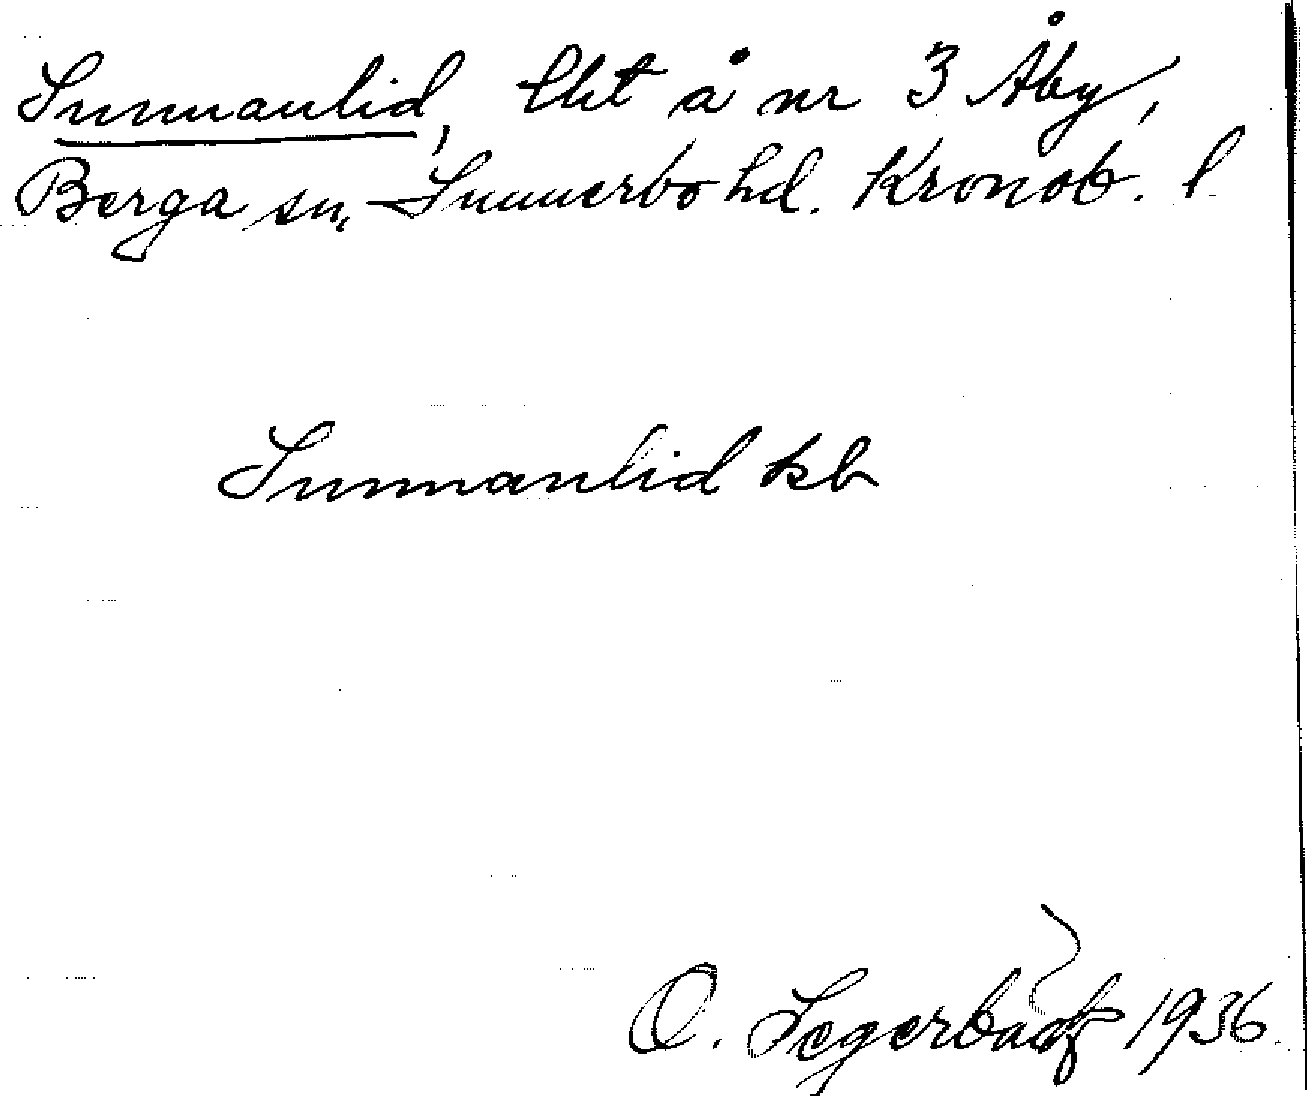 Sunnanlid, lht å nr 3 Åby,
Berga sn, Sunnerbo hd. Kronob. l
Sunnanlid kb
O. Segerbäck 1936